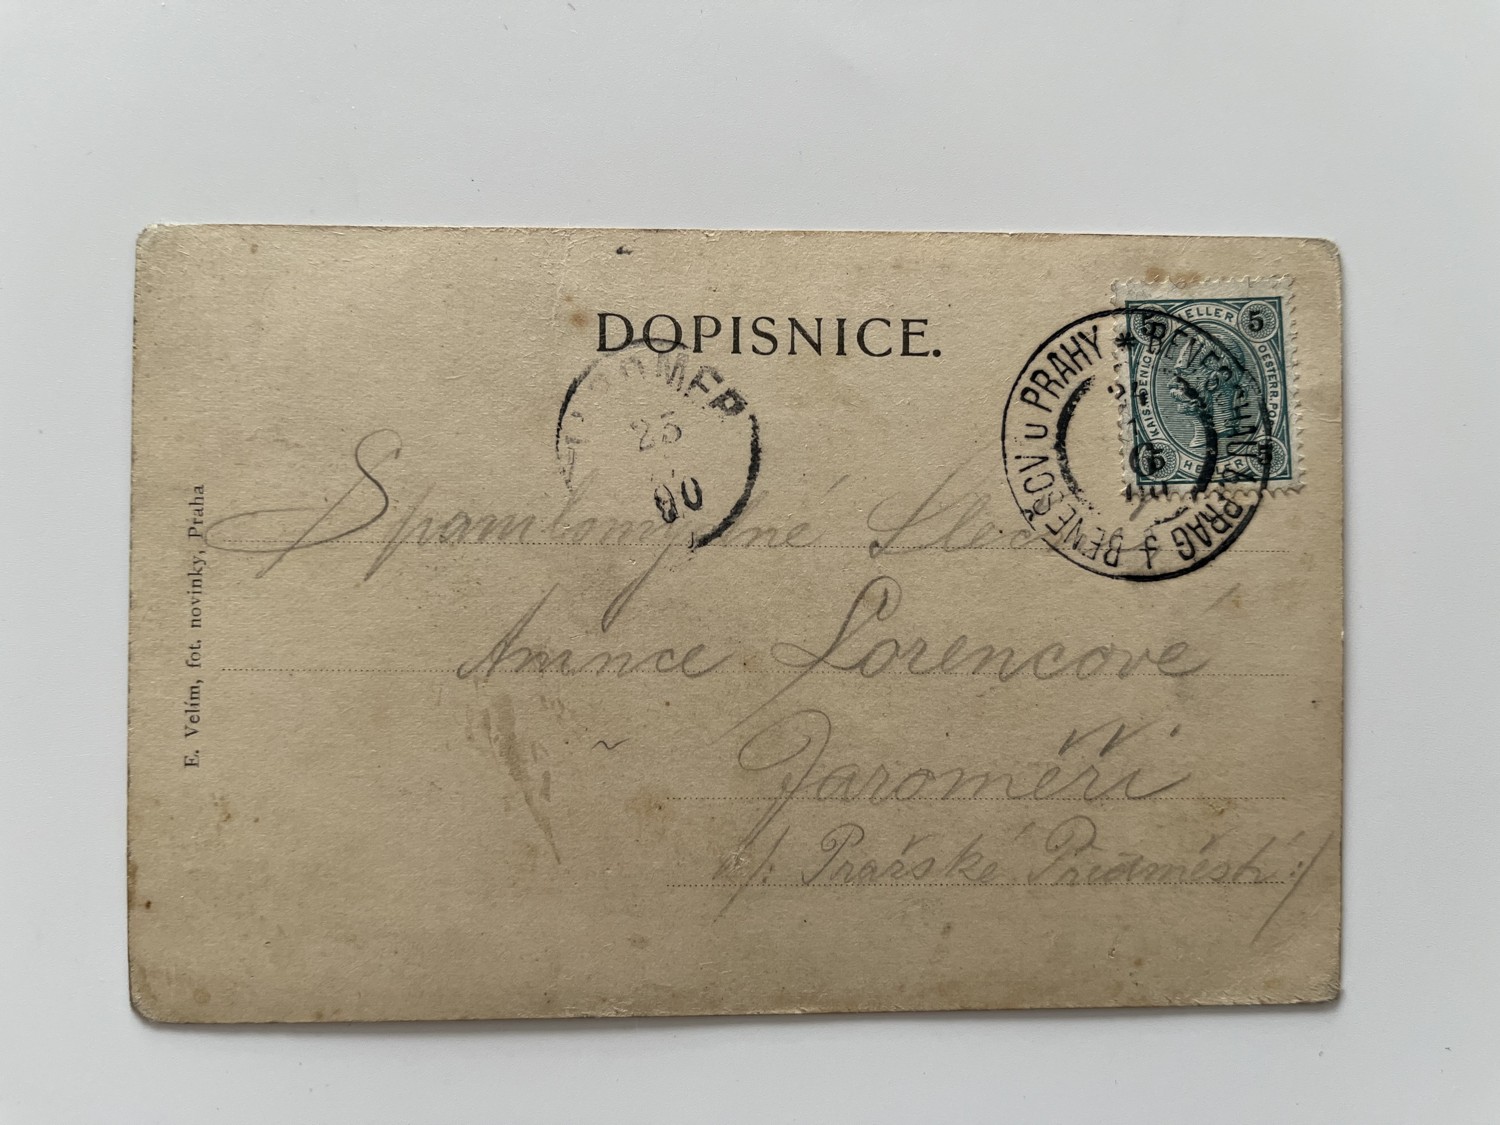 DOPISNICE.
JAROMĚŘ
25
00
BENEŠOV U PRAHY * BENESCHAU B. PRAG
5 HELLER 5
KAIS. KOENIGL. OESTERR. POST
HELLER 5
E. Velím, fot. novinky, Praha
Slečně
Amince Lorencové
Jaroměři
Pražské Předměstí :/